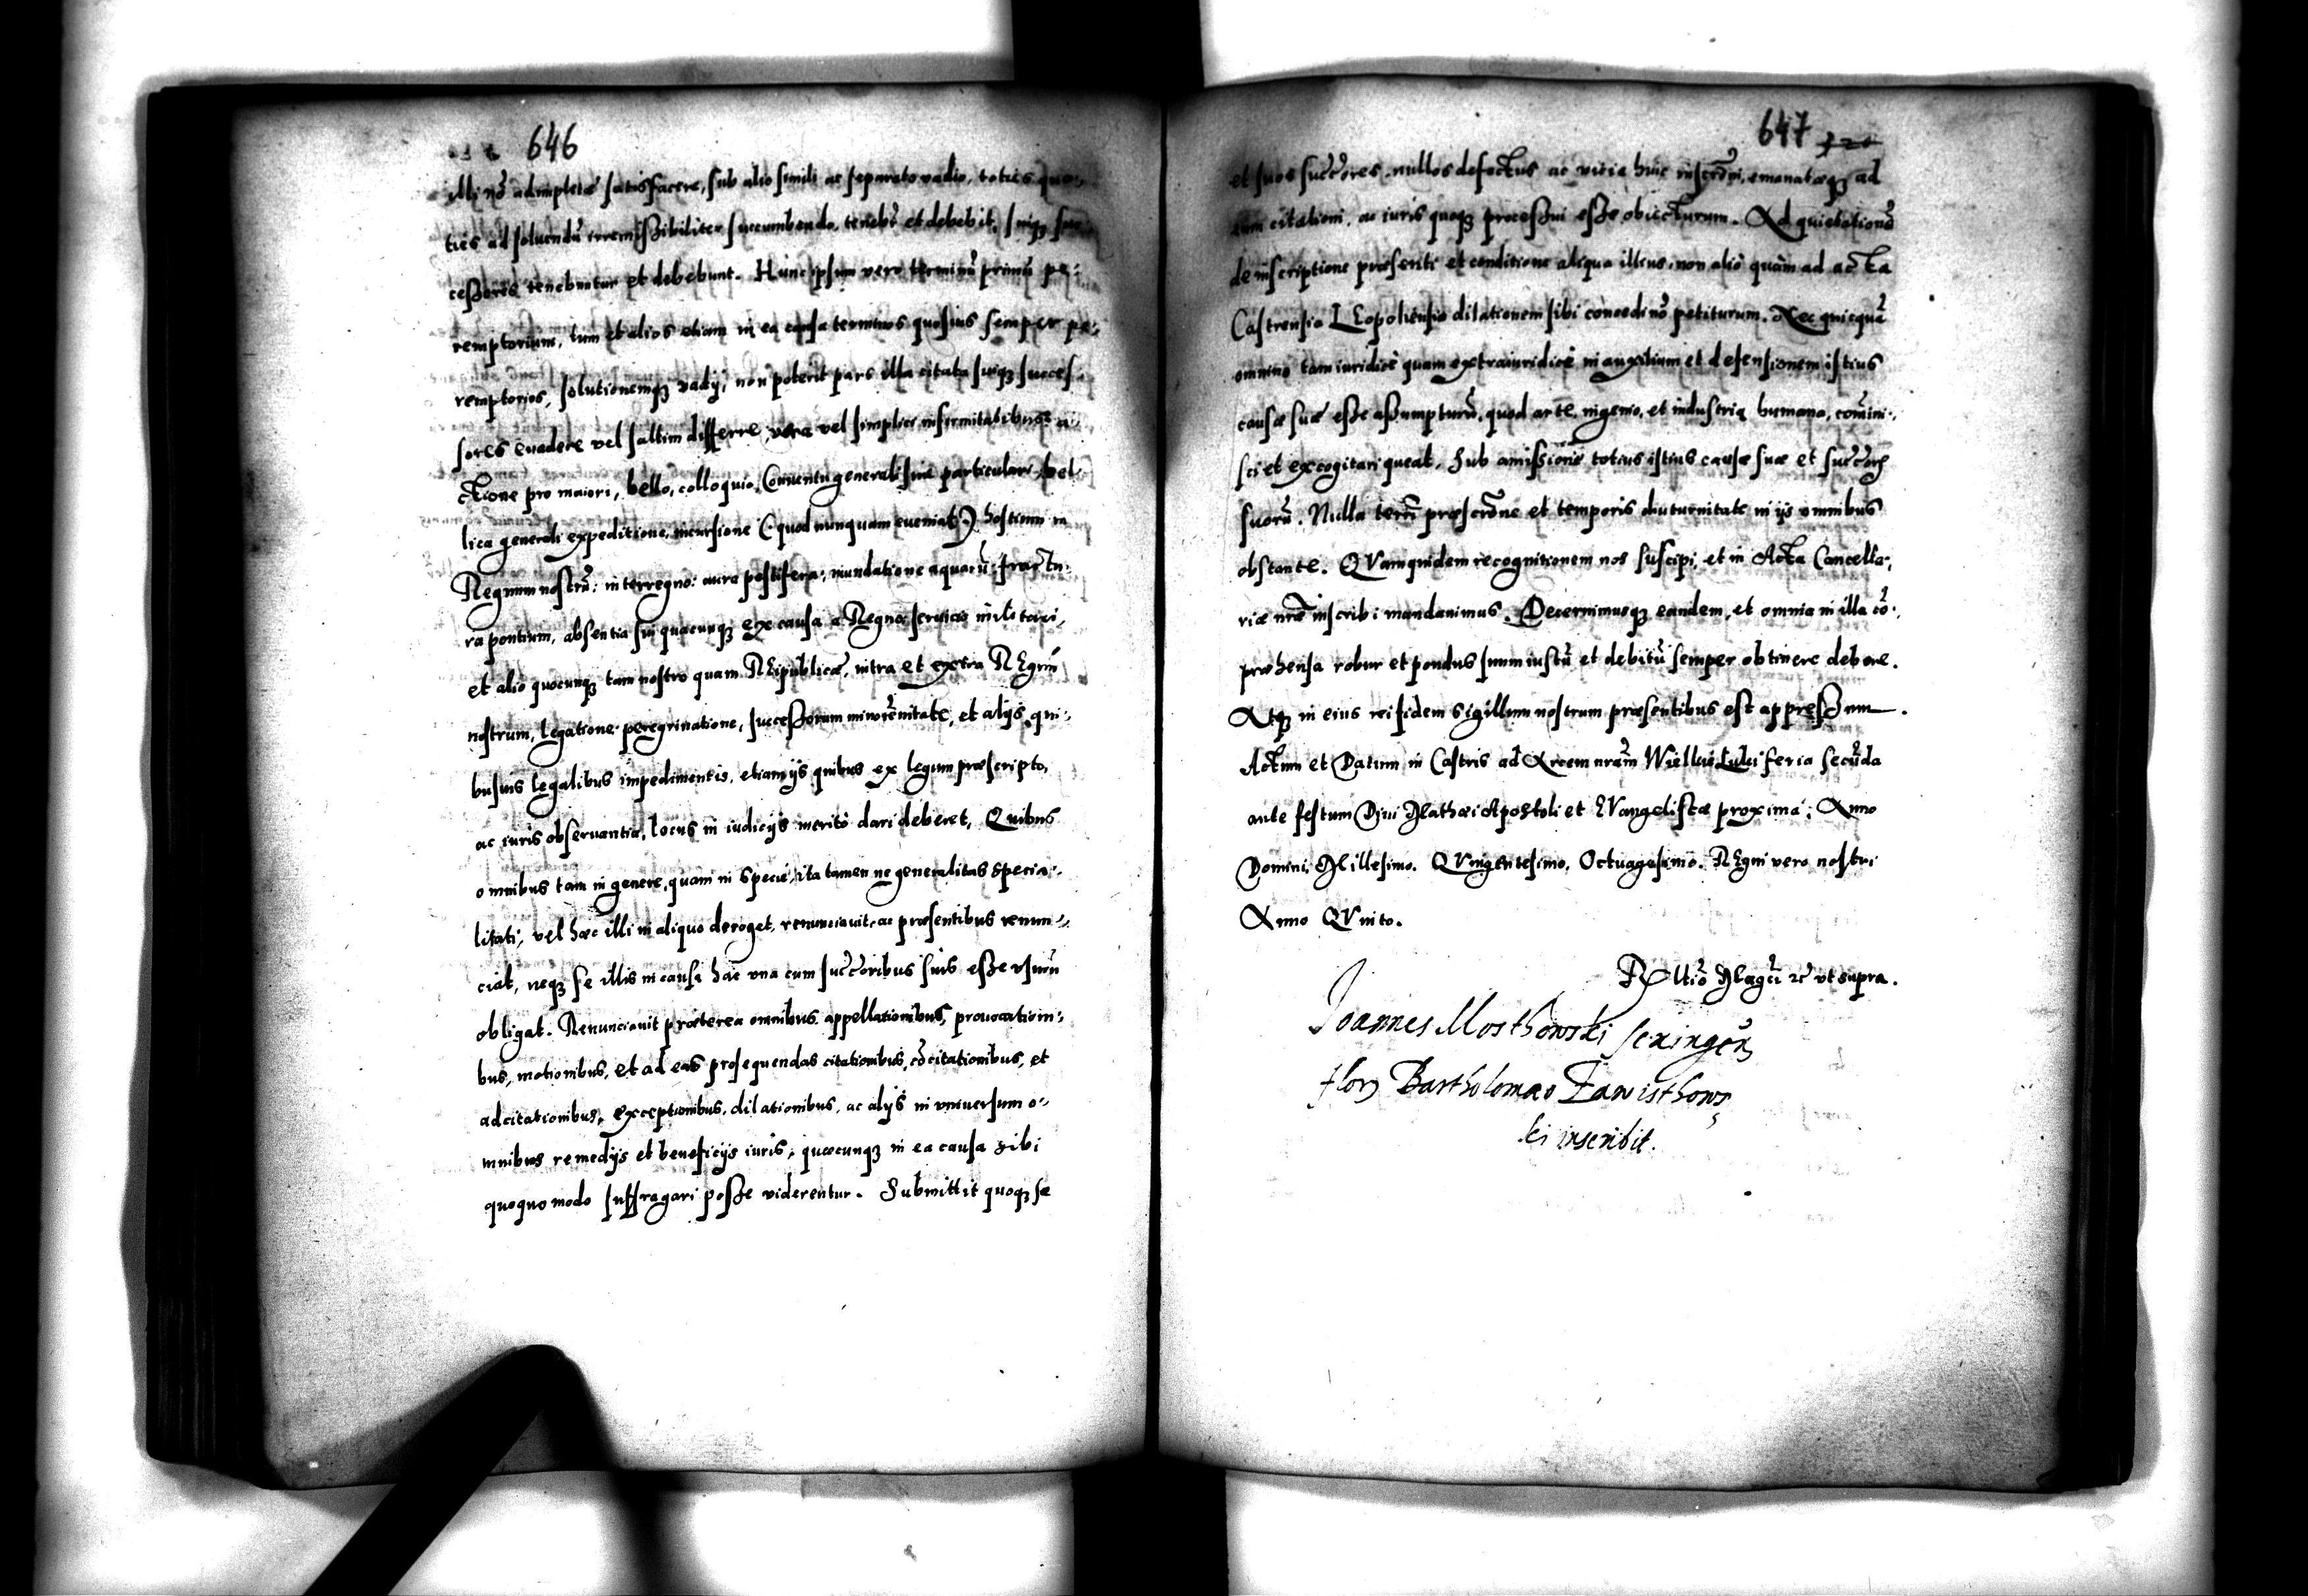 646
illi nõ adimpletæ satisfacere, sub alio simili ac separato vadio, toties quo-
ties ad soluendũ irremissibiliter succumbendo, tenebr̃ et debebit, suiq₃ suc-
cessores tenebuntur et debebunt. Hunc ipsum vero terminũ primũ pe-
remptorium, tum et alios etiam in ea causa terminos quosuis semper pe-
remptorios, solutionemq₃ vadij, non poterit pars illa citata suiq₃ succes-
sores euadere vel saltim differre, vera vel simplici infirmitatibus: a-
ctione pro maiori, bello, colloquio, Conuentu generali siue particulari, bel-
lica generali expeditione, incursione (: quod nunquam eueniat :) hostium in
Regnum nostrũ: interregno: aura pestifera: inundatione aquarũ: fractu-
ra pontium, absentia sui quacunq₃ ex causa a Regno seruicio militari,
et alio quocunq₃ tam nostro quam REipublicæ, intra et extra REgnũ
nostrum, legatione, peregrinatione, successorum minorẽnitate, et alijs qui-
busuis legalibus impedimentis, etiam ijs quibus ex legum præscripto,
ac iuris obseruantia, locus in iudicijs merito dari deberet, Quibus
omnibus tam in genere, quam in specie, ita tamen ne generalitas specia-
litati, vel hæc illi in aliquo deroget, renunciauit, ac præsentibus renun-
ciat, neq₃ se illis in causa hac vna cum succ̃oribus suis esse vsurũ
obligat. Renunciauit præterea omnibus appellationibus, prouocationi-
bus, motionibus, et ad eas prosequendas citationibus, cõcitationibus, et
adcitationibus, exceptionibus, dilationibus, ac alijs in vniuersum o-
mnibus remedijs et beneficijs iuris, quæcunq₃ in ea causa sibi
quoquo modo suffragari posse viderentur. Submittit quoq₃ se
647
et suos succ̃ores, nullos defectus ac vicia huic inscrõni, emanatæq₃ ad
eum citationi, ac iuris quoq₃ processui esse obiecturum. Ad quietationẽ
de inscriptione præsenti et conditione aliqua illius, non aliò quàm ad acta
Castrensia LEopoliensia dilationem sibi concedi nõ petiturum. Nec quicquã
omnino tam iuridicè quam extraiuridicè in auxilium et defensionem istius
causæ suæ esse assumpturũ, quod arte, ingenio, et industria humana, comini-
sci et excogitari queat. Sub amissione totius istius causæ suæ et succ̃orũ
suorũ. Nulla terr̃ præscrõne et temporis diuturnitate in ijs omnibus
obstante. QVam quidem recognitionem nos suscipi, et in Acta Cancella-
riæ nr̃æ inscribi mandauimus. Decernimusq₃ eandem, et omnia in illa cõ-
præhensa robur et pondus suum iustũ et debitũ semper obtinere debere.
Atq₃ in eius rei fidem sigillum nostrum præsentibus est appressum.
Actum et Datum in Castris ad Arcem nram̃ Wielluiẽ Luki feria secũda
ante festum Diui Mathæi Apostoli et EVangelistæ proxima: Anno
Domini. Millesimo. QVingentesimo. Octuagesimo. REgni vero nostri
Anno QVinto.
Rĕltiõ Magci rc̃ vt supra.
Joannes Mosthowski
Bartholomæo Zawisthows
ki inscribit.